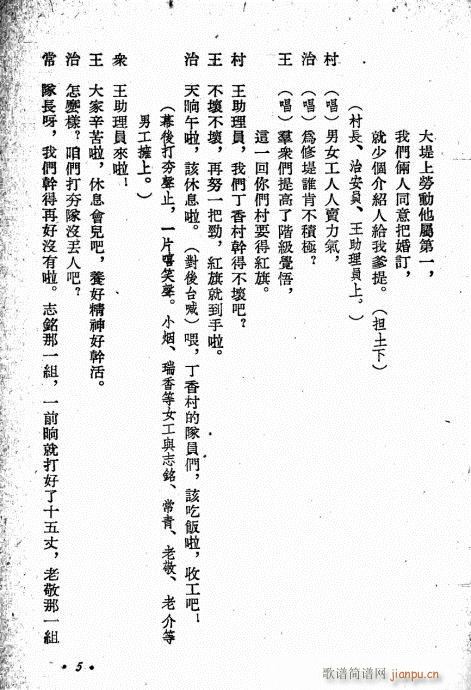 大堤上勞動他屬第一，
我們倆人同意把婚訂，
就少個介紹人給我爹提。（担土下）
（村長、治安員、王助理員上。）
村　（唱）男女工人人賣力氣，
治　（唱）爲修堤誰肯不積極？
王　（唱）羣衆們提高了階級覺悟，
這一回你們村要得紅旗。
村　王助理員，我們丁香村幹得不壞吧？
王　不壞不壞，再努一把勁，紅旗就到手啦。
治　天晌午啦，該休息啦。（對後台喊）喂，丁香村的隊員們，該吃飯啦，收工吧！
（幕後打夯聲止，一片嘻笑聲。小烟、瑞香等女工與志銘、常青、老敬、老介等
男工擁上。）
衆　王助理員來啦！
王　大家辛苦啦，休息會兒吧，養好精神好幹活。
治　怎麼樣？咱們打夯隊沒丟人吧？
常　隊長呀，我們幹得再好沒有啦。志銘那一組，一前晌就打好了十五丈，老敬那一組
• 5 •
歌谱简谱网
jianpu.cn